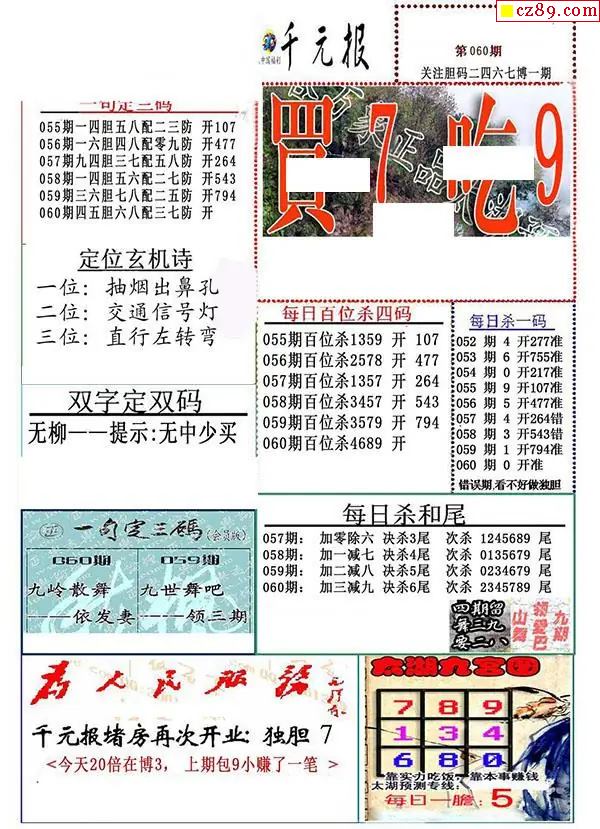 cz89.com
千元报
中国福利
第060期
关注胆码二四六七博一期
一句定三码
055期一四胆五八配二三防 开107
056期一六胆四八配零九防 开477
057期九四胆三七配五八防 开264
058期一四胆五六配二七防 开543
059期三六胆七八配二五防 开794
060期四五胆六八配三七防 开
買 7 吃 9
定位玄机诗
一位: 抽烟出鼻孔
二位: 交通信号灯
三位: 直行左转弯
每日百位杀四码
055期百位杀1359 开 107
056期百位杀2578 开 477
057期百位杀1357 开 264
058期百位杀3457 开 543
059期百位杀3579 开 794
060期百位杀4689 开
每日杀一码
052 期 4 开277准
053 期 6 开755准
054 期 0 开217准
055 期 9 开107准
056 期 5 开477准
057 期 4 开264错
058 期 3 开543错
059 期 1 开794准
060 期 0 开准
错误期,看不好做独胆
双字定双码
无柳——提示:无中少买
每日杀和尾
057期: 加零除六 决杀3尾 次杀 1245689 尾
058期: 加一减七 决杀4尾 次杀 0135679 尾
059期: 加二减八 决杀5尾 次杀 0234679 尾
060期: 加三减九 决杀6尾 次杀 2345789 尾
一句定三碼(会员版)
060期
九岭散舞
——依发妻
059期
九世舞吧
——领三期
四期留
舞三九
要二八
为人民服务
千元报堵房再次开业: 独胆 7
<今天20倍在博3, 上期包9小赚了一笔 >
太湖九宫图
7 8 9
1 3 4
6 8 0
靠实力吃饭,靠本事赚钱
太湖预测专线:
每日一胆: 5